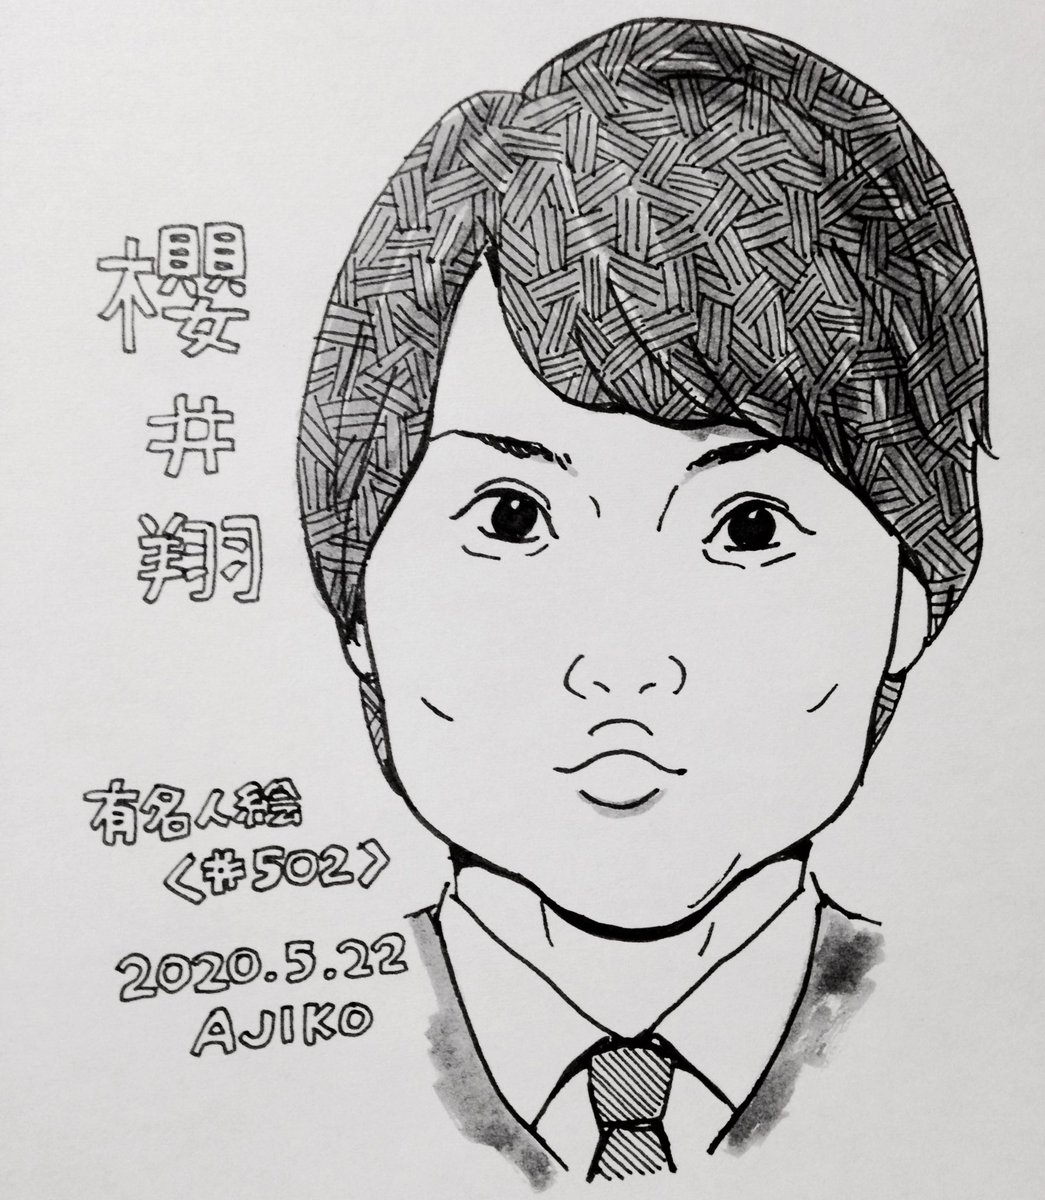 櫻井翔
有名人絵
〈#502〉
2020.5.22
AJIKO